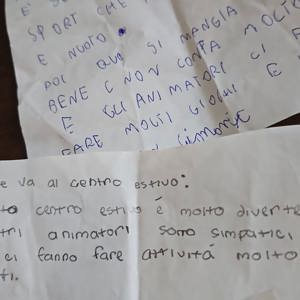 SPORT CHE
E NUOTO
POI QUI SI MANGIA MOLTO
BENE E NON CONTA
E GLI ANIMATORI CI F
FARE MOLTI GIOCHI E
e va al centro estivo:
to centro estivo è molto diverte
tri animatori sono simpatici
ci fanno fare attività molto
ti.